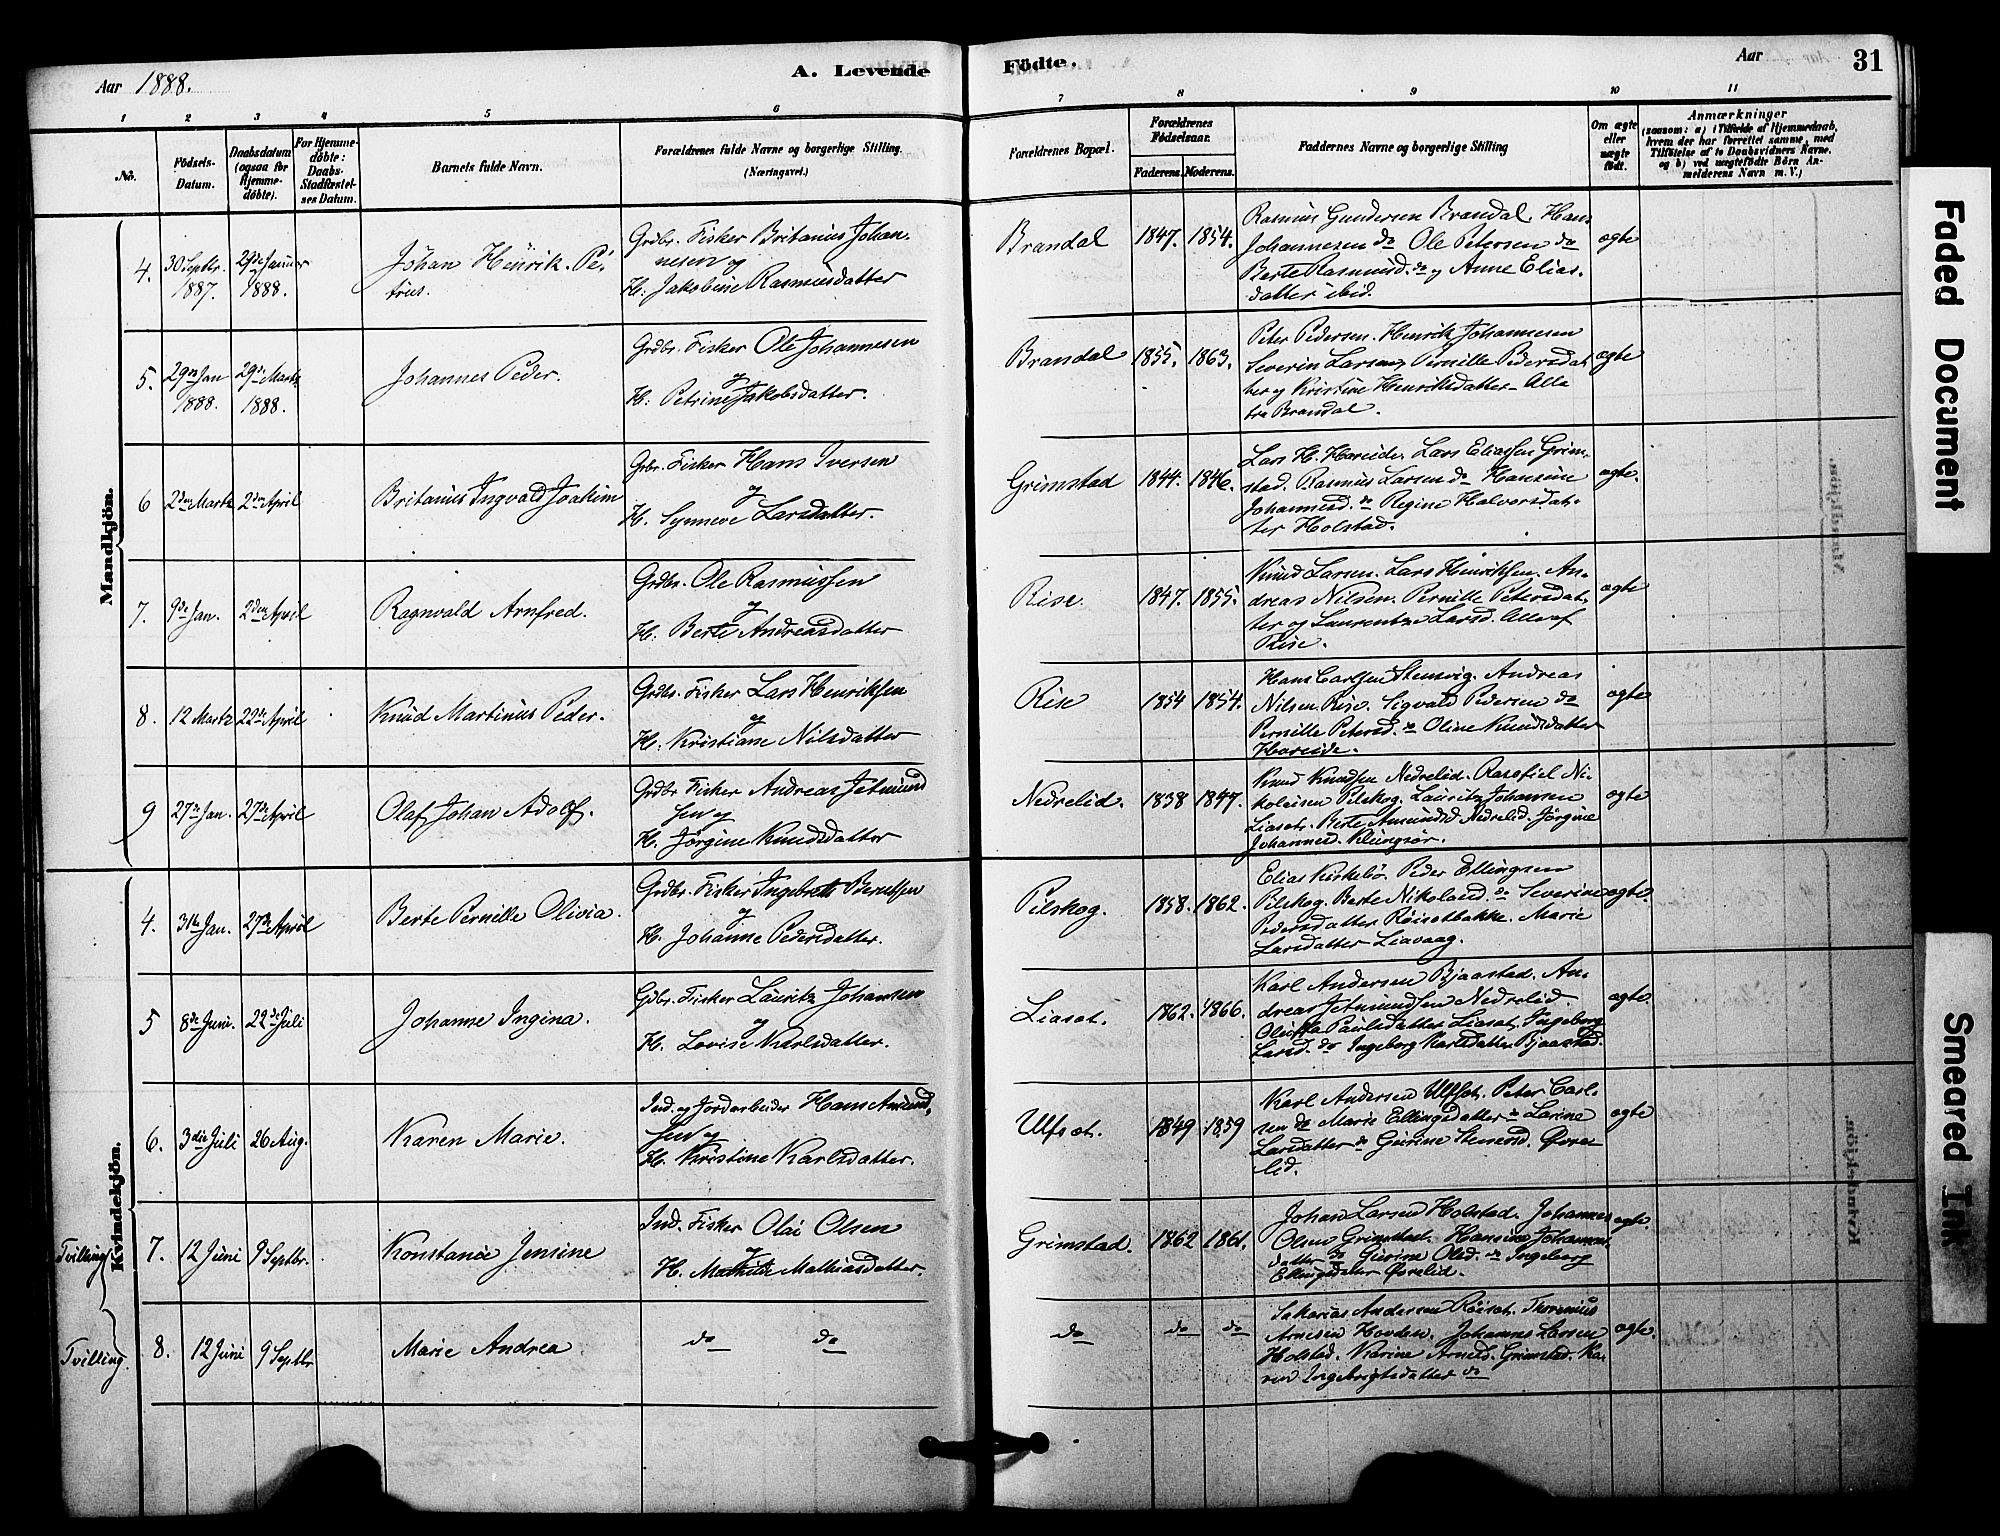 Aar 1888.
A. Levende
Födte.
Aar
31
1
2
3
4
5
6
7
8
9
10
11
No.
Födsels-
Datum.
Daabsdatum
(ogsaa for
Hjemme-
döbte).
For Hjemme-
döbte:
Daabs-
Stadfæstel-
ses Datum.
Barnets fulde Navn.
Forældrenes fulde Navne og borgerlige Stilling.
(Næringsvei.)
Forældrenes Bopæl.
Forældrenes
Födselsaar.
Faderens.
Moderens.
Faddernes Navne og borgerlige Stilling
Om ægte
eller
uægte
födt.
Anmærkninger
(saasom: a) i Tilfælde af Hjemmedaab,
hvem der har forrettet samme, med
Tilföielse af to Daabsvidners Navne,
og b) ved uægtefödt Börn An-
melderens Navn m. V.)
Mandkjön.
4. 30 Septbr. 1887. 29de Januar 1888.
Johan Henrik Pe-
trus.
Grdbr. Fisker Britanius Johan-
nesen og
H: Jakobine Rasmusdatter
Brandal 1847. 1854.
Rasmus Gundersen Brandal. Hans
Johannesen do Ole Petersen do
Berte Rasmusd. do og Anne Elias-
datter ibid.
ægte
5. 29de Jan 1888. 29de Marts 1888.
Johannes Peder.
Grdbr. Fisker Ole Johannesen
og
H: Petrine Jakobsdatter.
Brandal 1855. 1863.
Peter Pedersen. Henrik Johannesen
Severin Larsen, Pernille Pedersdat-
ter og Kristine Henriksdatter – Alle
fra Brandal.
ægte
6 2den Marts 2den April
Britanius Ingvald Joakim
Grbr. Fisker Hans Iversen
og
H. Synneve Larsdatter.
Grimstad 1844. 1846.
Lars H. Hareide, Lars Eliassen Grim-
stad. Rasmus Larsen do Hansine
Johannesd. do Regine Halvorsdat-
ter Holstad.
ægte.
7. 9de Jan. 2den April
Ragnvald Arnfred.
Grdbr. Ole Rasmussen
og
H: Berte Andreasdatter
Rise. 1847. 1855.
Knud Larsen. Lars Henriksen. An-
dreas Nilsen. Pernille Petersdat-
ter og Laurentze Larsd. Alle af
Rise.
ægte
8. 12 Marts 22de April
Knud Martinus Peder.
Grdbr. Fisker Lars Henriksen
og
H: Kristiane Nilsdatter
Rise 1854 1854.
Hans Carlsen Stensvig. Andreas
Nilsen Rise. Sigvald Pedersen do
Pernille Petersd. do Oline Knudsdatter
Hareide.
ægte
9 27de Jan. 27de April
Olaf Johan Adolf.
Grdbr Fisker Andreas Jetmund
sen og
H. Jørgine Knudsdatter
Nedrelid. 1838 1847.
Knud Knudsen Nedrelid. Ni-
kolaisen Pilskog. Lauritz Johansen
Liaset. Berte Amundsd Nedrelid. Jørgine
Johannesd. Klungsør.
ægte
Kvindekjön.
4. 31te Jan. 27de April
Berte Pernille Olivia.
Grdbr. Fisker Ingebret
og
H. Johanne Pedersdatter.
Pilskog. 1858. 1862.
Elias Kirkebø. Peder Ellingsen
Pilskog. Berte Nikolaid. do Severine
Pedersdatter Røisetbakke. Marie
Larsdatter Liavaag.
ægte.
5 8de Juni. 22de Juli
Johanne Ingina.
Gdbr. Fisker Lauritz Johansen
og
H. Lovise Karlsdatter.
Liaset. 1862. 1866.
Karl Andersen Bjaastad. An-
dreas Jetmundsen Nedrelid
Paulsdatter Liaset. Ingeborg
Larsd. do Ingeborg Karlsdatter Bjaastad.
ægte.
6. 3die Juli 26 Aug.
Karen Marie.
Ind. og Jordarbeider Hans Amund-
sen og
H. Kristine Karlsdatter.
Ulfset. 1849 1859
Karl Andersen Ulfset. Peter Carl-
sen do Marie Ellingsdatter do Larine
Larsdatter do Gurine Øvre-
lid.
ægte
Tvilling
7. 12 Juni 9 Septbr.
Konstance Jensine
Ind. Fisker Olai Olsen
og
H. Mathilde Mathiasdatter.
Grimstad. 1862 1861.
Johan Larsen Holstad. Johannes
Olsen Grimstad. Hansine Johannes-
datter do Gurine Olsd. do Ingeborg
Ellingsdatter Øvrelid.
ægte.
Tvilling
8. 12 Juni 9 Septbr
Marie Andrea
do do
do do do
Sakarias Andersen Røiset. Thorenius
Arnesen Hovden. Johannes Larsen
Holstad. Karine Arnesd. Grimstad. Ka-
ren Ingebrigtsdatter do
ægte.
Faded Document
Smeared Ink